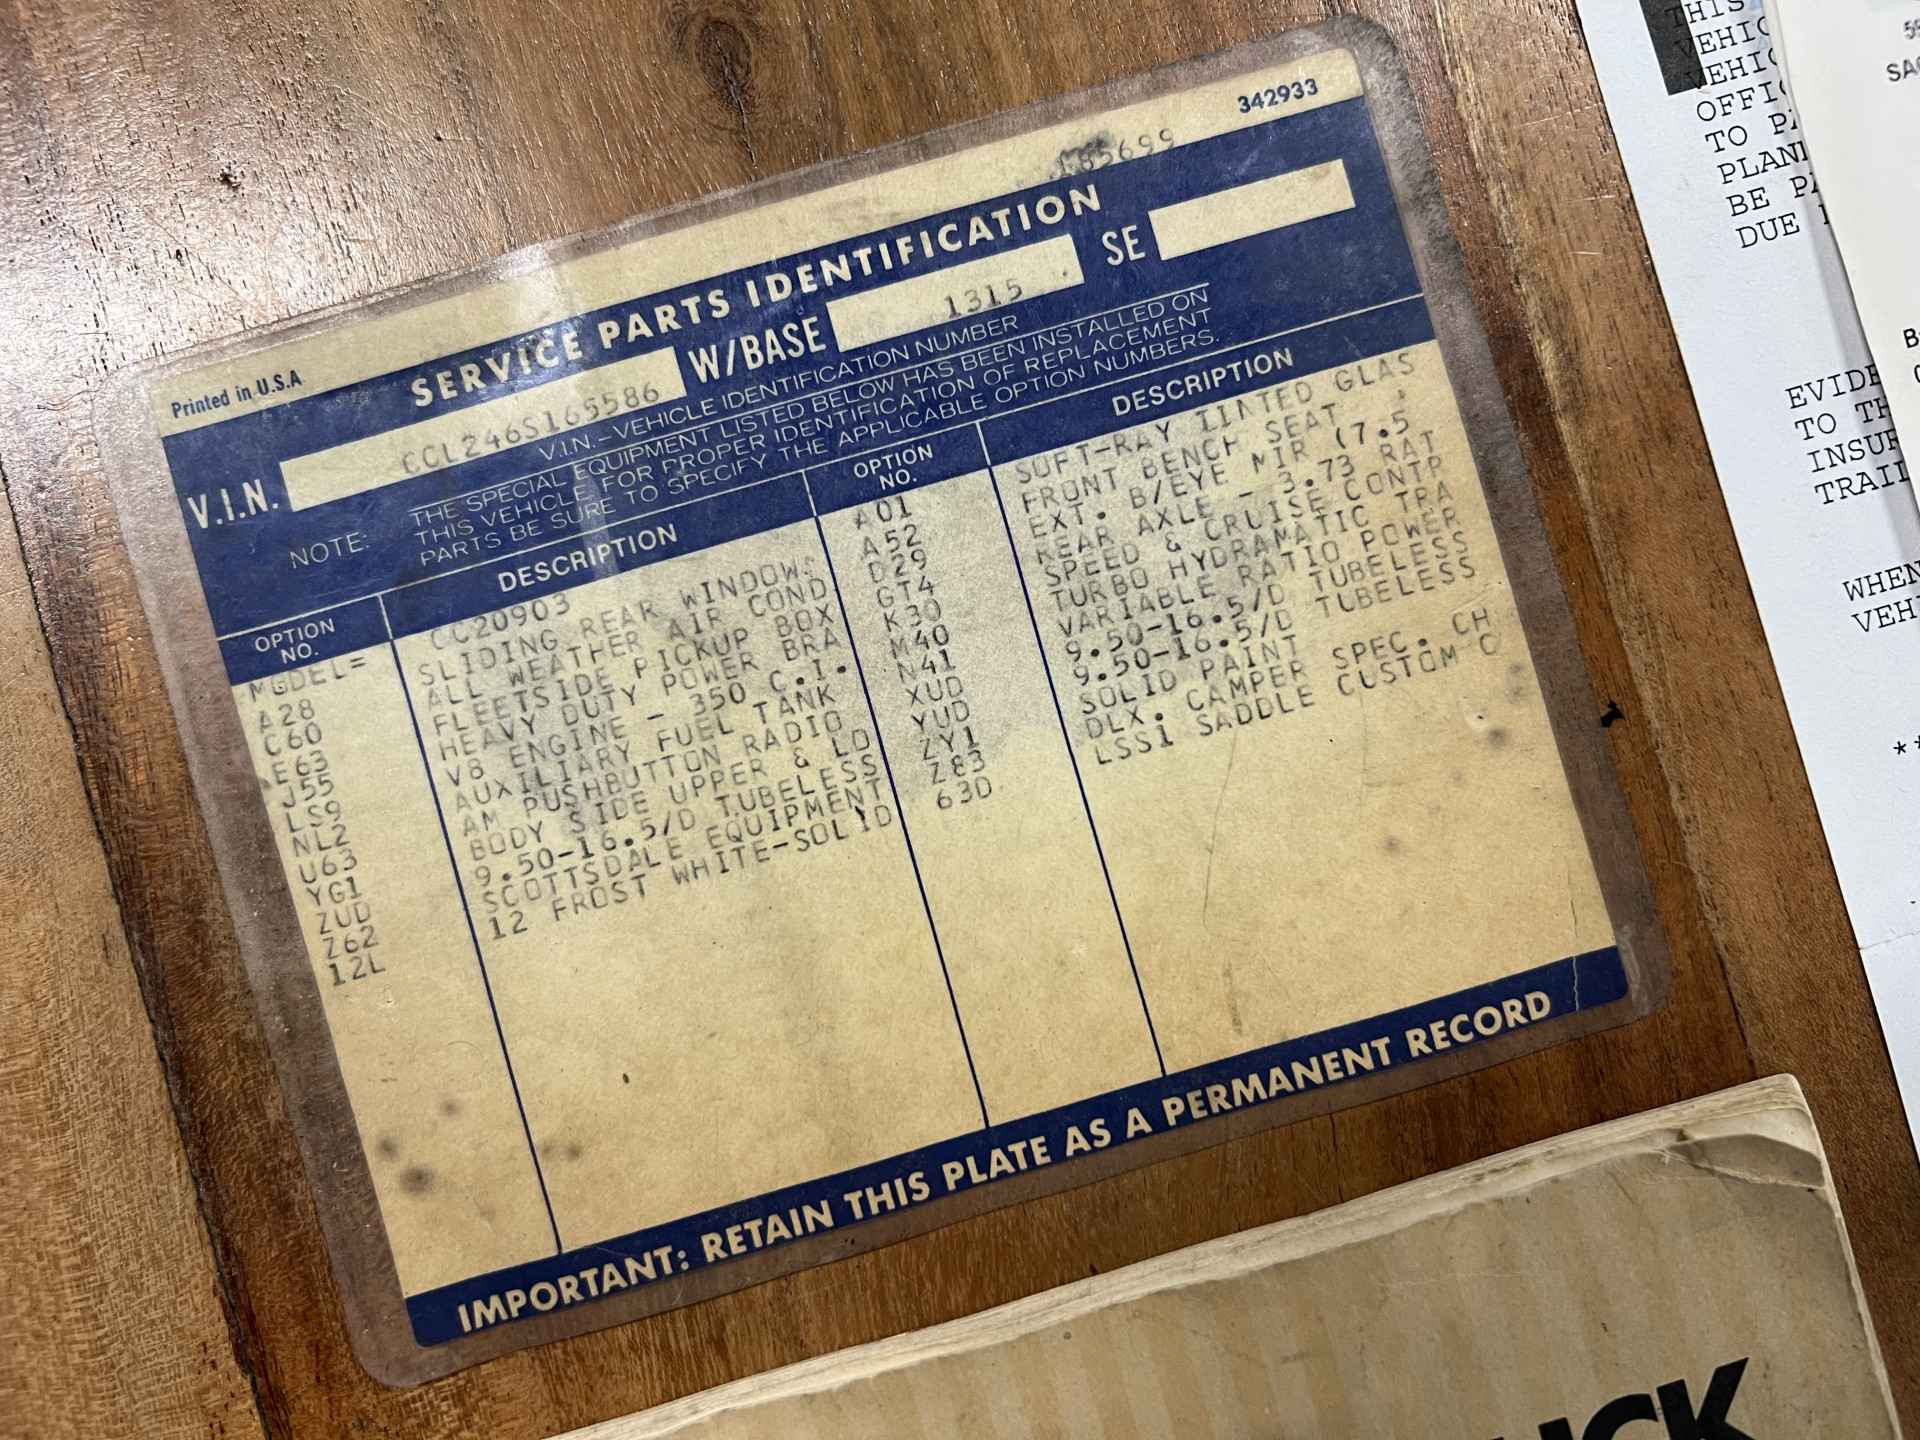 342933
165699
Printed in U.S.A
SERVICE PARTS IDENTIFICATION
V.I.N. CCL246S165586 W/BASE 1315 SE
V.I.N.–VEHICLE IDENTIFICATION NUMBER
NOTE: THE SPECIAL EQUIPMENT LISTED BELOW HAS BEEN INSTALLED ON
THIS VEHICLE FOR PROPER IDENTIFICATION OF REPLACEMENT
PARTS BE SURE TO SPECIFY THE APPLICABLE OPTION NUMBERS.
OPTION NO. DESCRIPTION
MODEL= CC20903
A28 SLIDING REAR WINDOW
C60 ALL WEATHER AIR COND
E63 FLEETSIDE PICKUP BOX
J55 HEAVY DUTY POWER BRA
LS9 V8 ENGINE - 350 C.I.
NL2 AUXILIARY FUEL TANK
U63 AM PUSHBUTTON RADIO
YG1 BODY SIDE UPPER & LO
ZUD 9.50-16.5/D TUBELESS
Z62 SCOTTSDALE EQUIPMENT
12L 12 FROST WHITE-SOLID
OPTION NO. DESCRIPTION
A01 SOFT-RAY TINTED GLAS
A52 FRONT BENCH SEAT ,
D29 EXT. B/EYE MIR (7.5
GT4 REAR AXLE - 3.73 RAT
K30 SPEED & CRUISE CONTR
M40 TURBO HYDRAMATIC TRA
N41 VARIABLE RATIO POWER
XUD 9.50-16.5/D TUBELESS
YUD 9.50-16.5/D TUBELESS
ZY1 SOLID PAINT
Z83 DLX. CAMPER SPEC. CH
63D LSS1 SADDLE CUSTOM C
IMPORTANT: RETAIN THIS PLATE AS A PERMANENT RECORD
THIS
VEHIC
VEHIC
OFFIC
TO PA
PLAN
BE PA
DUE
EVIDE
TO TH
INSUR
TRAIL
WHEN
VEHI
**